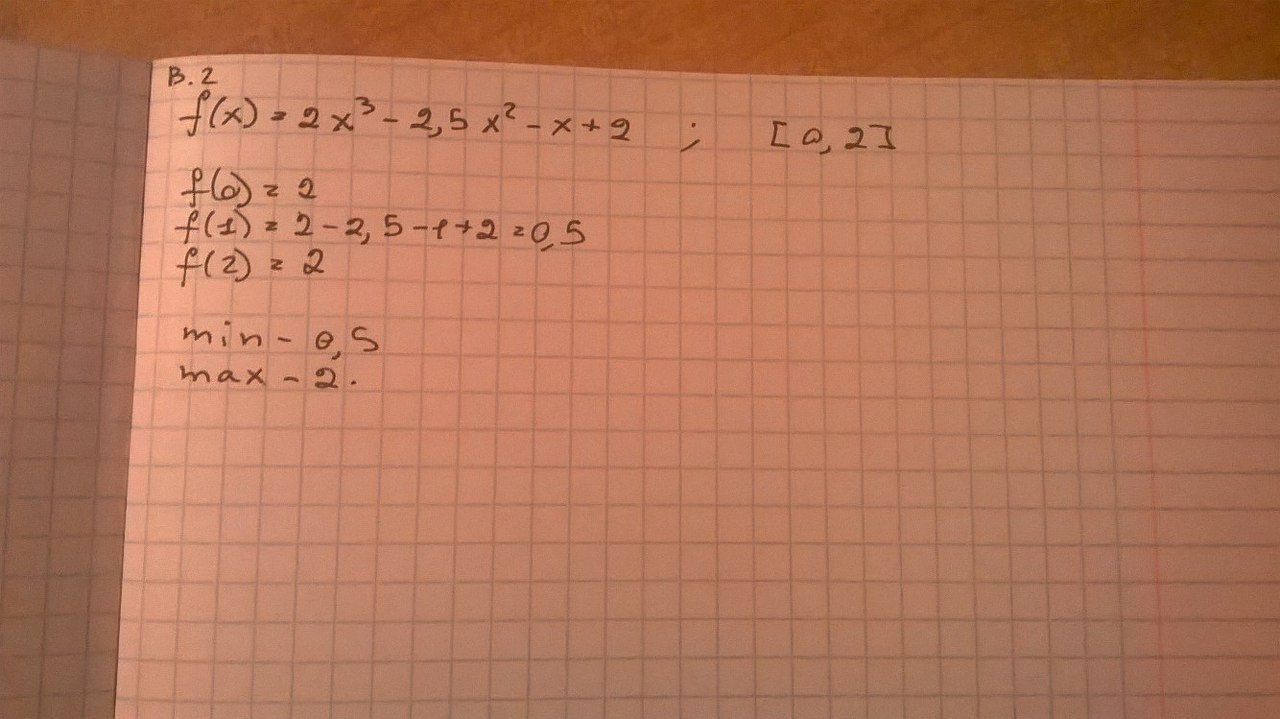 В.2
f(x) = 2x³ - 2,5x² - x + 2 ; [0, 2]
f(0) = 2
f(1) = 2 - 2,5 - 1 + 2 = 0,5
f(2) = 2
min - 0,5
max - 2.